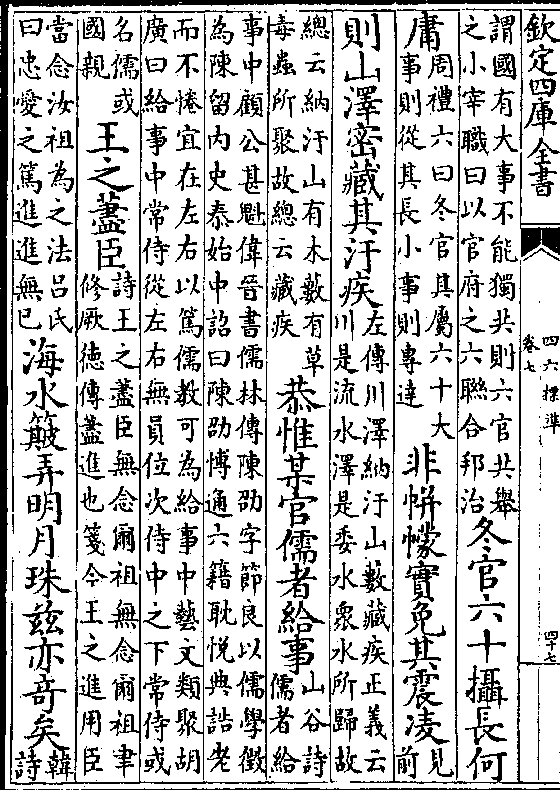 欽定四庫全書
四六標準
卷七
四十七
謂國有大事不能獨共則六官共舉
之小宰職曰以官府之六聯合邦治
冬官六十攝長何
庸
周禮六曰冬官其屬六十大
事則從其長小事則專達
非帡幪實免其震凌
見
前
則山澤密藏其汙疾
左傳川澤納汙山藪藏疾正義云
川是流水澤是委水衆水所歸故
總云納汙山有木藪有草
毒蟲所聚故總云藏疾
恭惟某官儒者給事
山谷詩
儒者給
事中顧公甚魁偉晉書儒林傳陳劭字節良以儒學徵
為陳留内史泰始中詔曰陳劭博通六籍耽悦典誥老
而不倦宜在左右以篤儒教可為給事中藝文類聚胡
廣曰給事中常侍從左右無員位次侍中之下常侍或
名儒或
國親
王之藎臣
詩王之藎臣無念爾祖無念爾祖聿
修厥德傳藎進也箋今王之進用臣
當念汝祖為之法吕氏
曰忠愛之篤進進無已
海水簸弄明月珠兹亦奇矣
韓
詩